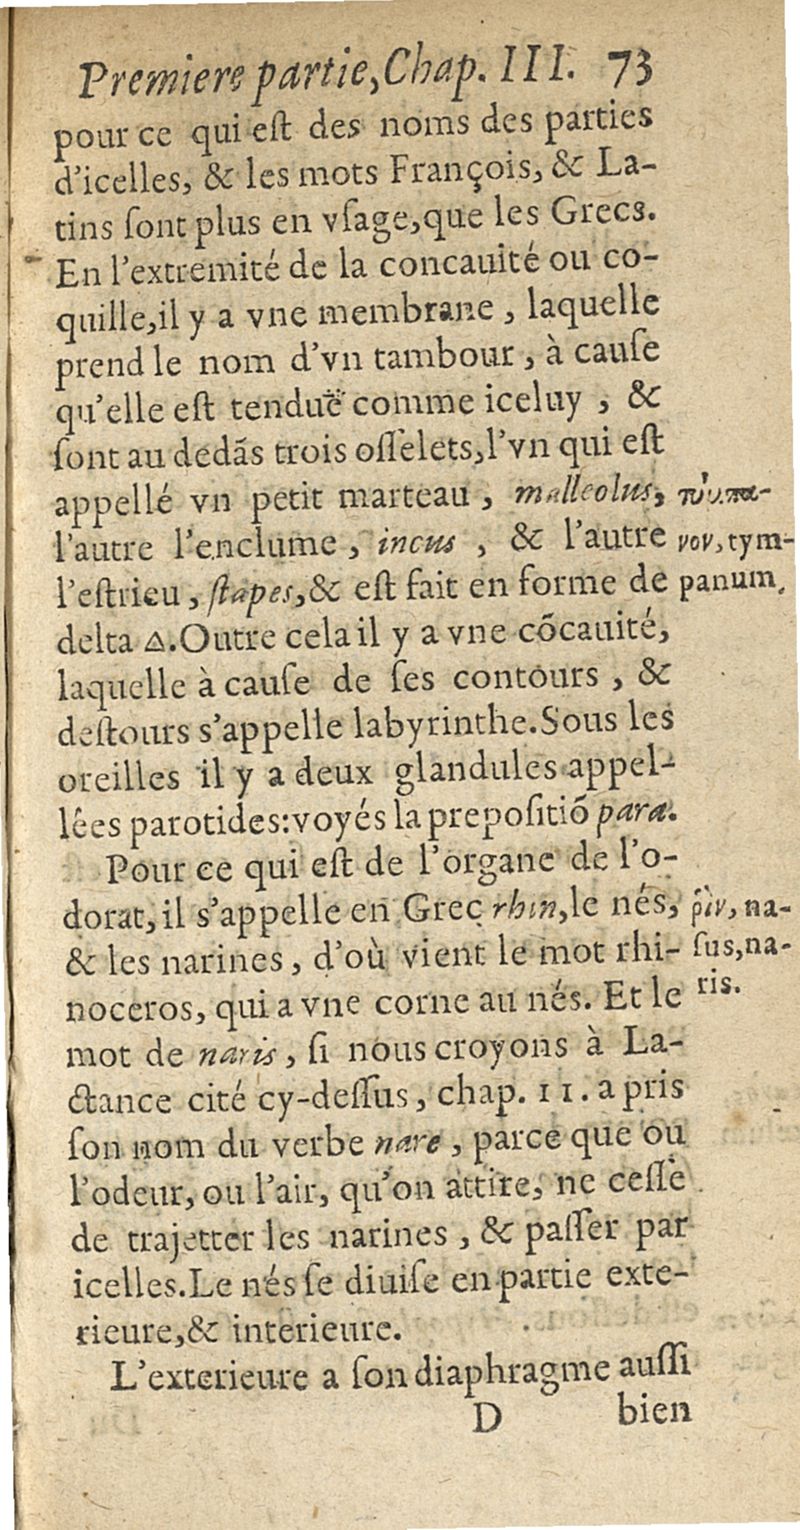 Premiere partie, Chap. III. 73
pour ce qui eſt des noms des parties
d'icelles, & les mots François, & La-
tins ſont plus en vſage, que les Grecs.
En l'extremité de la concauité ou co-
quille, il y a vne membrane, laquelle
prend le nom d'vn tambour, à cauſe
qu'elle eſt tenduë comme iceluy, &
ſont au dedãs trois oſſelets, l'vn qui eſt
appellé vn petit marteau, malleolus,
l'autre l'enclume, incus, & l'autre
l'eſtrieu, ſtapes, & eſt fait en forme de
delta Δ. Outre cela il y a vne cõcauité,
laquelle à cauſe de ſes contours, &
deſtours s'appelle labyrinthe. Sous les
oreilles il y a deux glandules appel-
lées parotides: voyés la prepoſitiõ para.
Pour ce qui eſt de l'organe de l'o-
dorat, il s'appelle en Grec rhin, le nés,
& les narines, d'où vient le mot rhi-
noceros, qui a vne corne au nés. Et le
mot de naris, ſi nous croyons à La-
ctance cité cy-deſſus, chap. 11. a pris
ſon nom du verbe nare, parce que ou
l'odeur, ou l'air, qu'on attire, ne ceſſe
de trajetter les narines, & paſſer par
icelles. Le nés ſe diuiſe en partie exte-
rieure, & interieure.
L'exterieure a ſon diaphragme auſſi
D bien
νον, tym-
panum.
ῥὶν, na-
ſus, na-
ris.